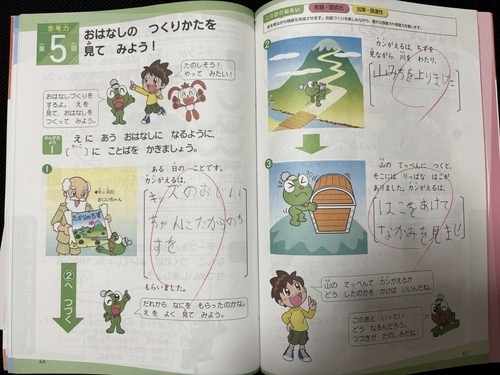 思考力
第5回
おはなしの つくりかたを
見て みよう！
たのしそう！
やって みたい！
おはなしづくりを
するよ。 えを
見て、おはなしを
つくって みよう。
かんがえよう
1
えに あう おはなしに なるように、
[ ]に ことばを かきましょう。
1
キッズの
おじいちゃん
たからのちず
ある 日の ことです。
カンがえるは、
キッズのおじい
ちゃんにたからのち
ずを
もらいました。
2へ つづく
だれから なにを もらったのかな。
えを よく 見て みよう。
46
この回のねらい
2
カンがえるは ちずを
見ながら 川を わたり、
山みちを上りました
3
山の てっぺんに つくと、
そこには りっぱな はこが
ありました。カンがえるは、
はこをあけて
なかみを見まし
山の てっぺんで カンがえるが
どう したのかを かけば いいんだね。
このあと いったい
どう なるんだろう。
つづきが たのしみだね！
47